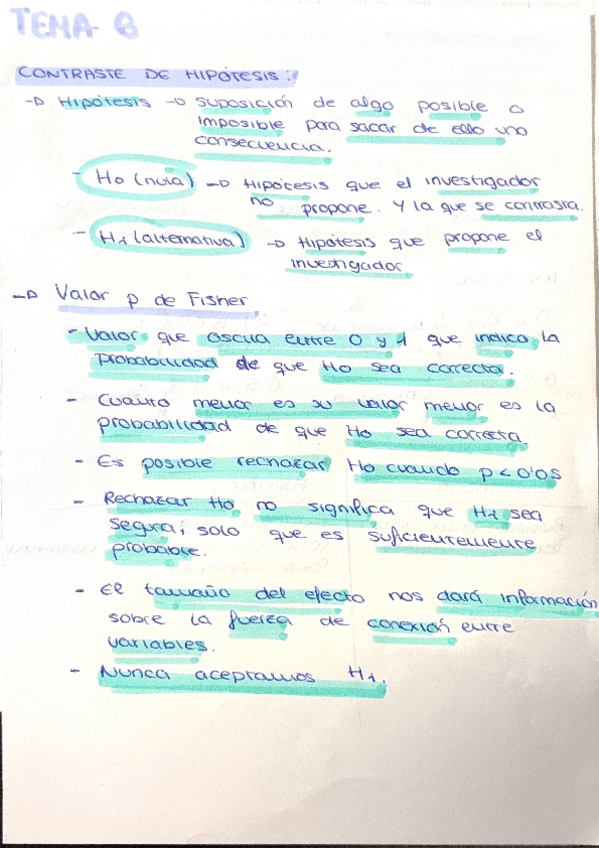 TEMA 6
CONTRASTE DE HIPÓTESIS:
→ Hipótesis → suposición de algo posible o
imposible para sacar de ello una
consecuencia.
- H0 (nula) → Hipótesis que el investigador
no propone. Y la que se contrasta.
- H1 (alternativa) → Hipótesis que propone el
investigador
→ Valor p de Fisher
- Valor que oscila entre 0 y 1 que indica la
probabilidad de que H0 sea correcta.
- Cuanto menor es su valor menor es la
probabilidad de que H0 sea correcta
- Es posible rechazar H0 cuando p < 0'05
- Rechazar H0 no significa que H1 sea
segura, solo que es suficientemente
probable.
- El tamaño del efecto nos dará información
sobre la fuerza de conexión entre
variables.
- Nunca aceptamos H1.